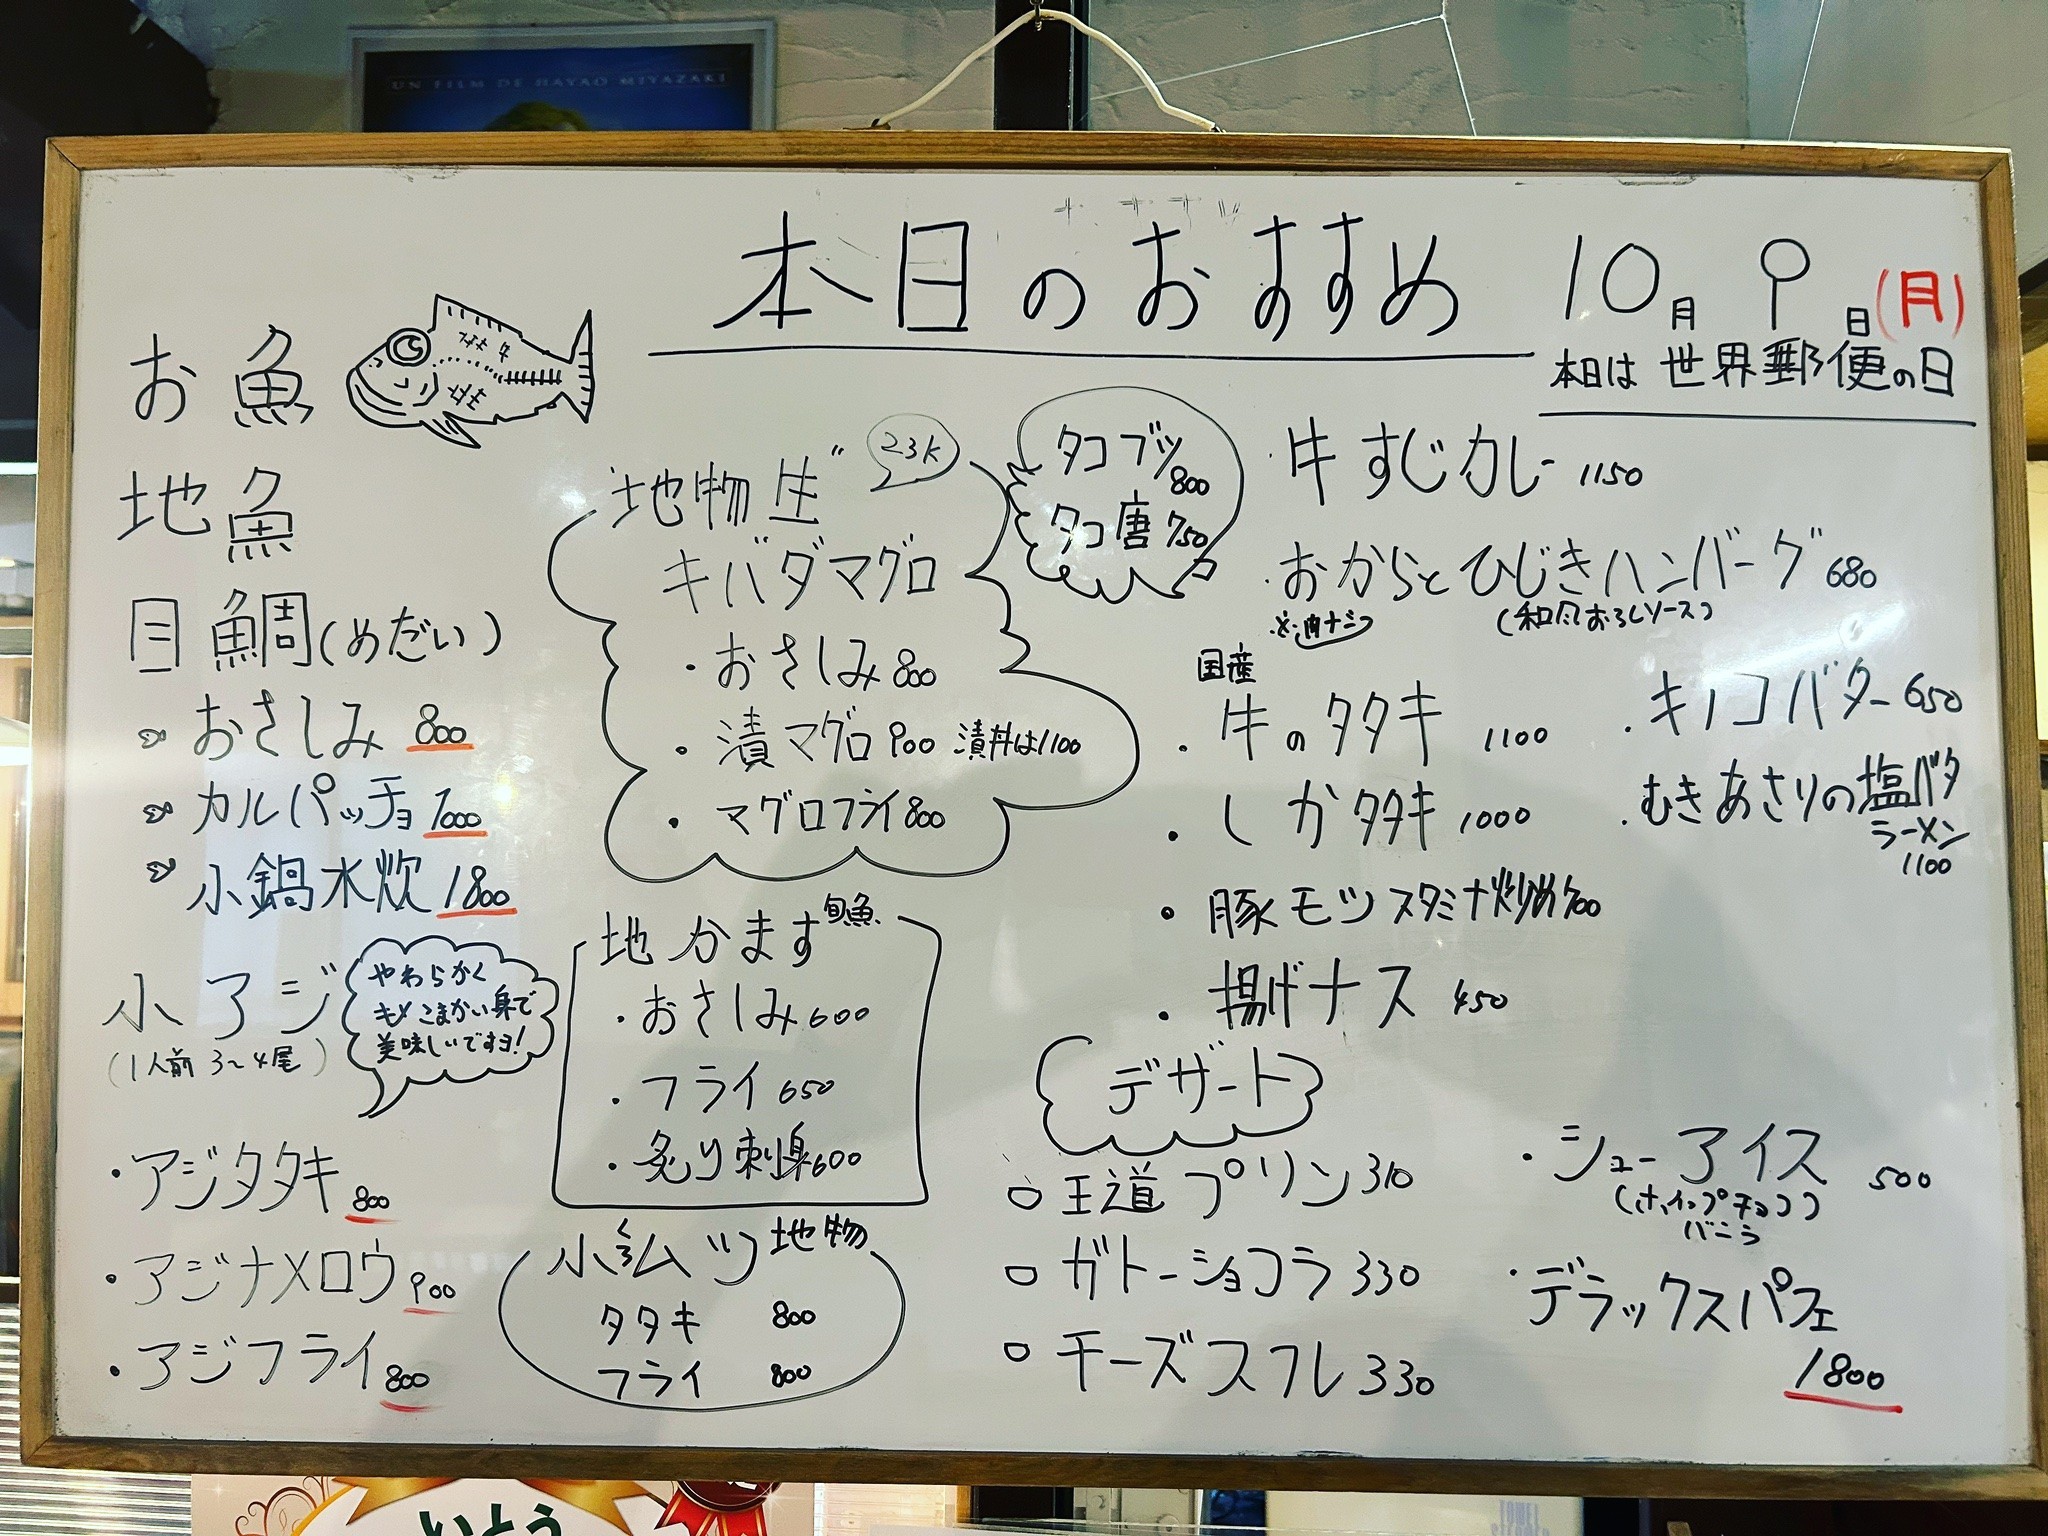 UN FILM DE HAYAO MIYAZAKI
本日のおすすめ
10月9日(月)
本日は世界郵便の日
お魚
地魚
目鯛(めだい)
おさしみ 800
カルパッチョ 1000
小鍋水炊 1800
小アジ
(1人前 3〜4尾)
やわらかく
キメこまかい身で
美味しいですヨ!
・アジタタキ 800
・アジナメロウ 900
・アジフライ 800
"地物生" 23K
キハダマグロ
・おさしみ 800
・漬マグロ 900 漬丼は1100
・マグロフライ 800
タコブツ 800
タコ唐 750
地かます 旬魚
・おさしみ 600
・フライ 650
・炙り刺身 600
小ムツ 地物
タタキ 800
フライ 800
・牛すじカレー 1150
・おからとひじきハンバーグ 680
※肉ナシ
(和風おろしソース)
国産
・牛のタタキ 1100
・しかタタキ 1000
・豚モツスタミナ炒め 700
・揚げナス 450
・キノコバター 650
・むきあさりの塩バタ
ラーメン
1100
デザート
○王道プリン 310
○ガトーショコラ 330
○チーズスフレ 330
・シューアイス 500
(ホイップチョコ)
バニラ
・デラックスパフェ
1800
いとう